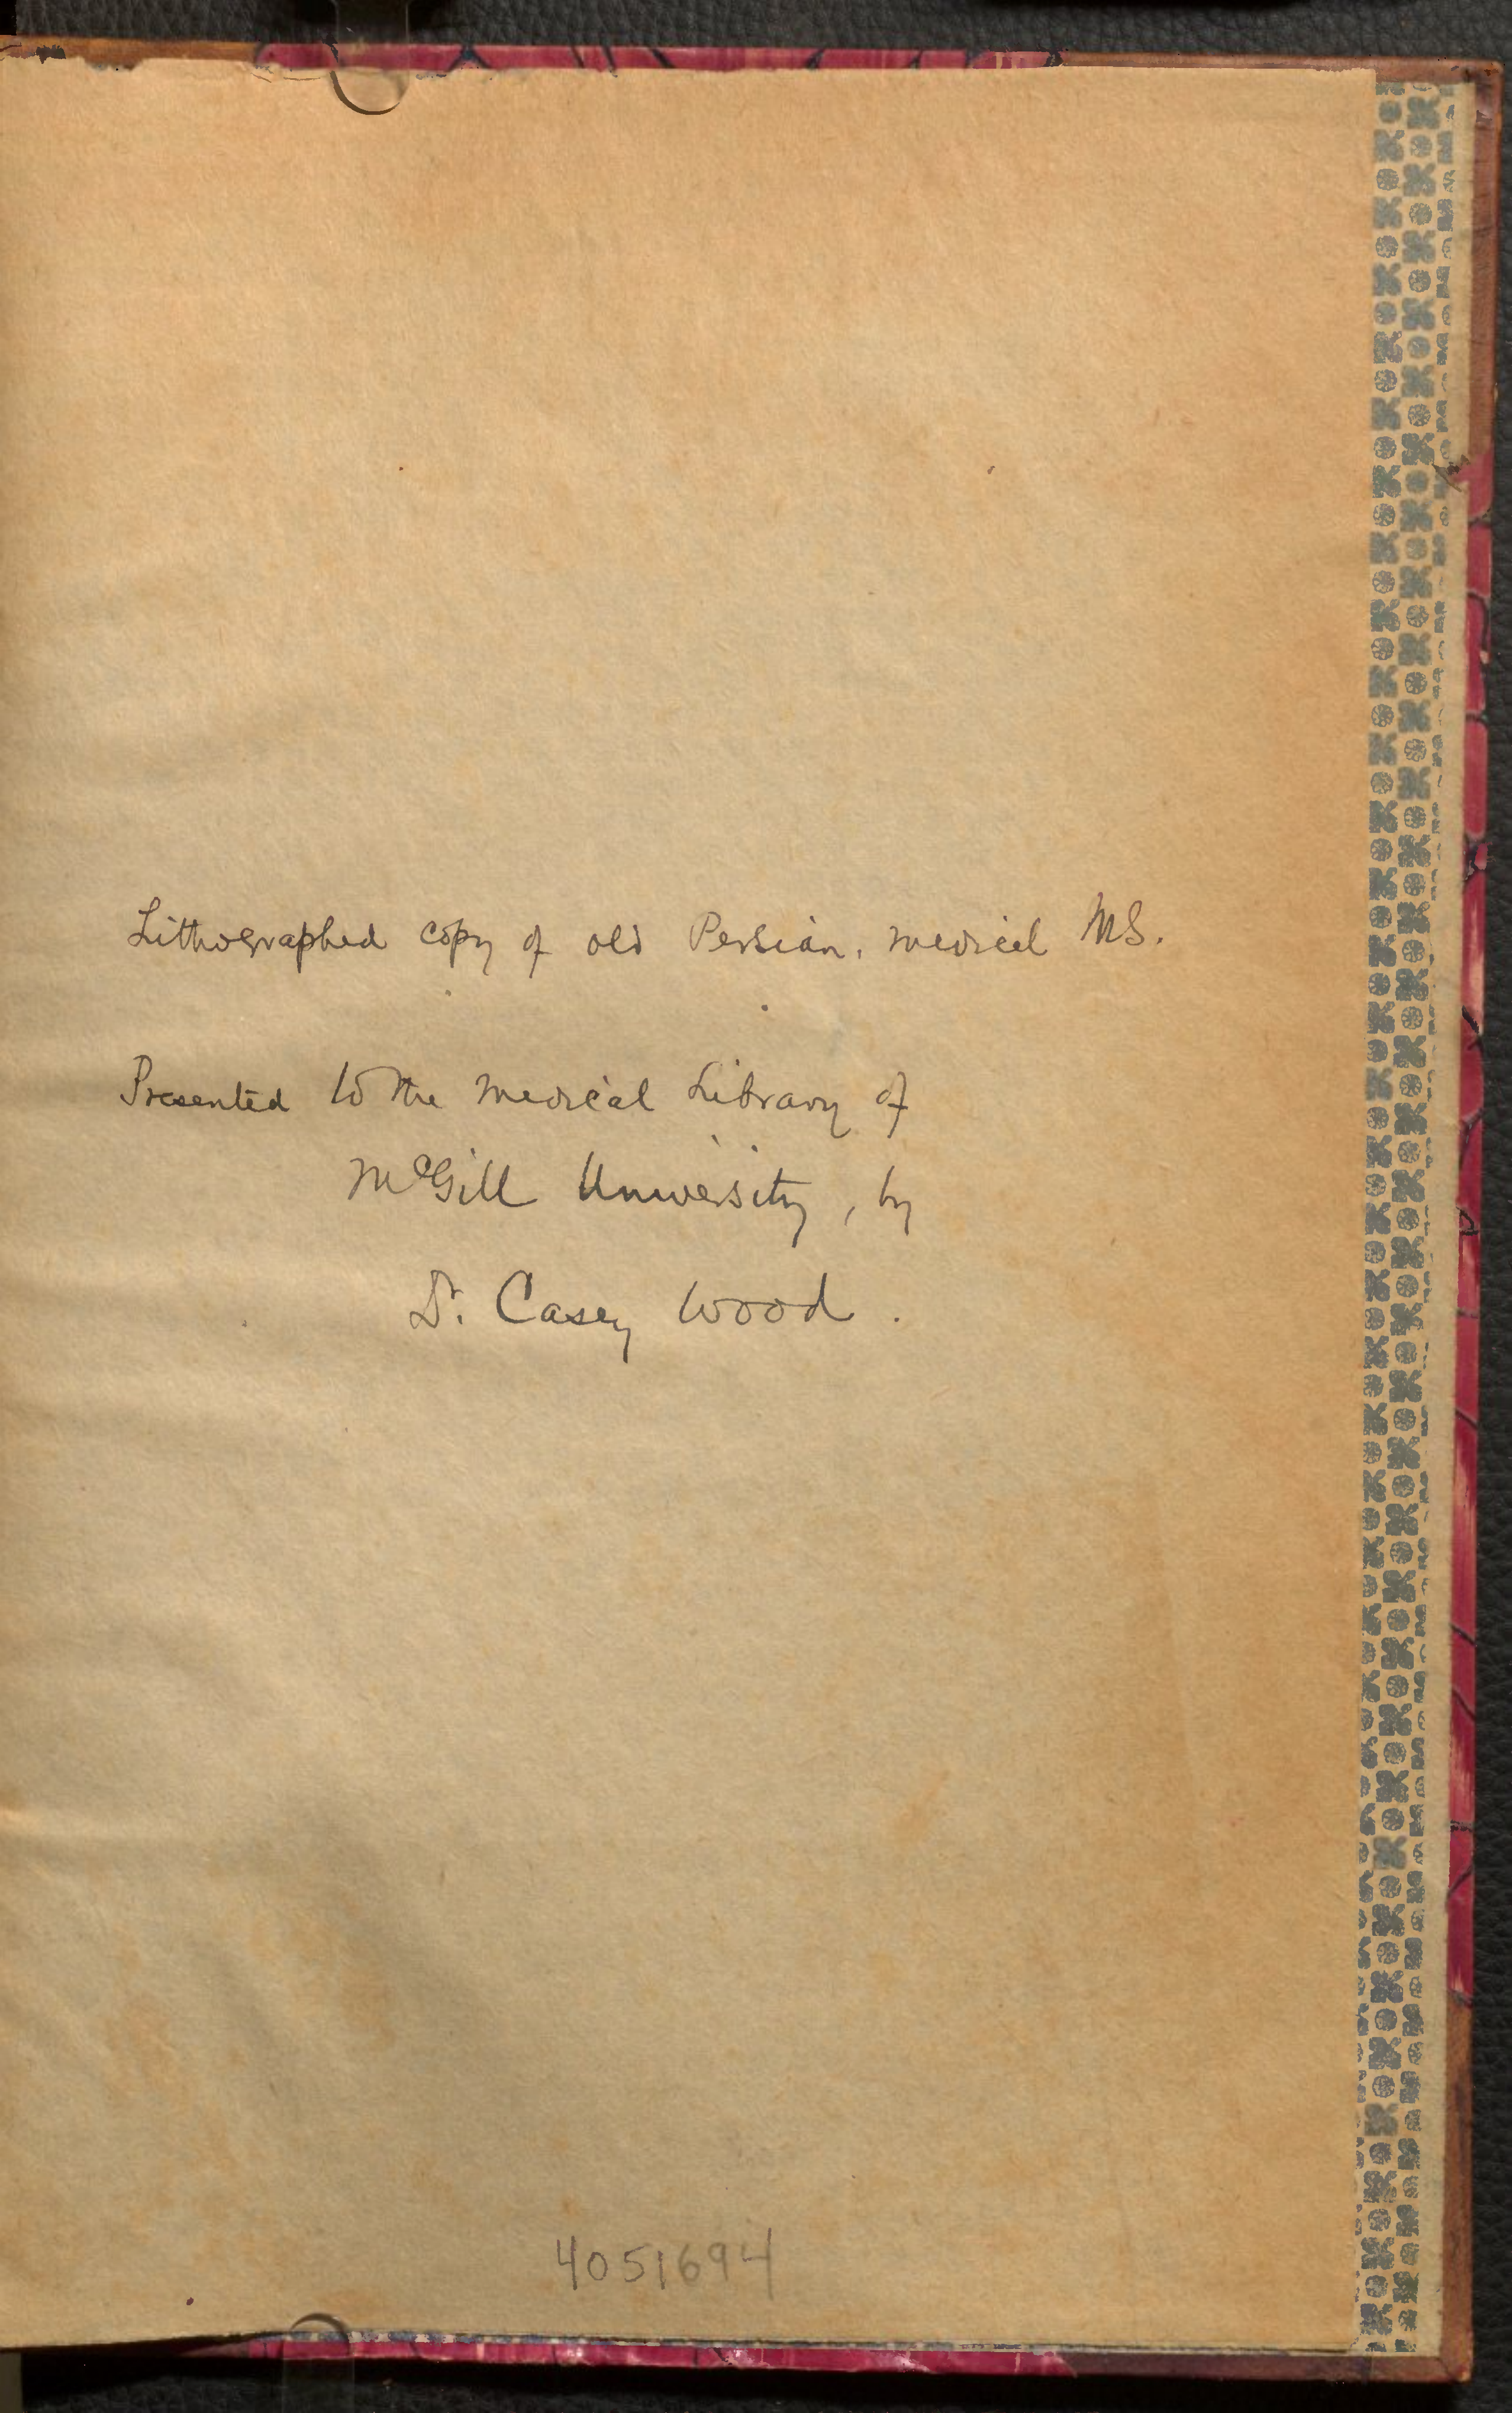 Lithographed copy of old Persian. medical MS.
Presented to the medical Library of
McGill University, by
Dr. Casey Wood.
4051694